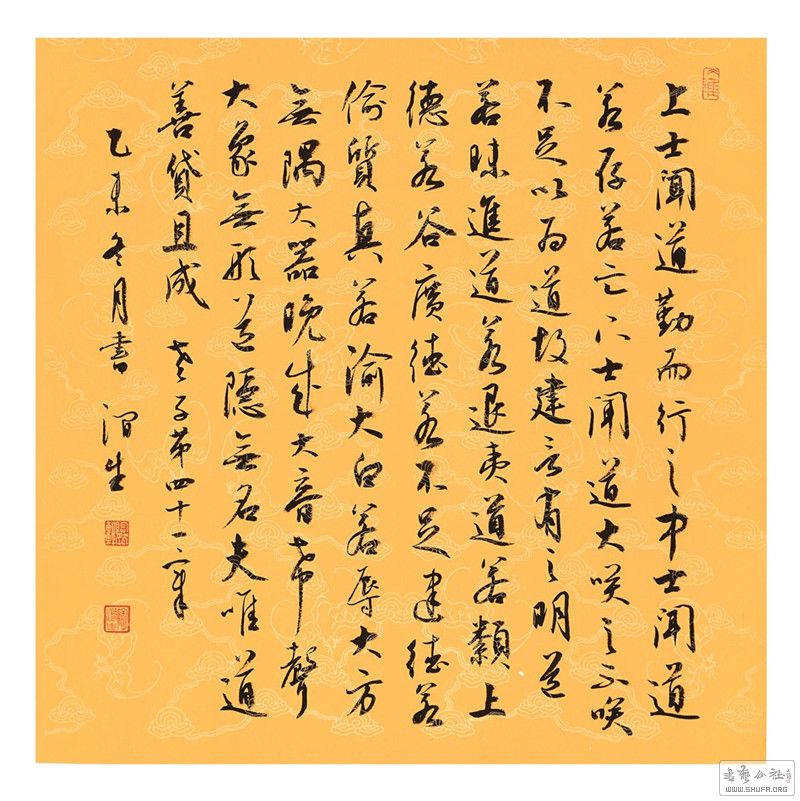 上士聞道勤而行之中士聞道
若存若亡下士聞道大咲之不咲
不足以为道故建言有之明道
若昧進道若退夷道若纇上
德若谷廣德若不足建德若
偷質真若渝大白若辱大方
無隅大器晚成大音希聲
大象無形道隱無名夫唯道
善貸且成 老子第四十一章
乙未冬月書 生
書藝公社
WWW.SHUFA.ORG